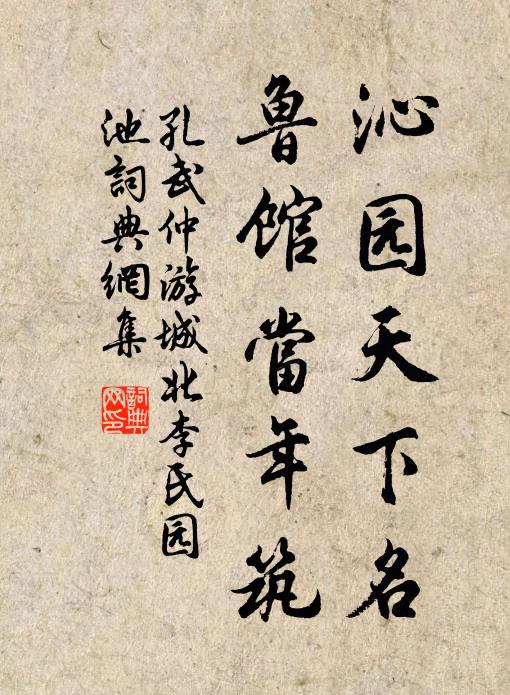 沁园天下名
魯馆當年筑
孔武仲游城北李氏园
池詞典網集
詞典网印